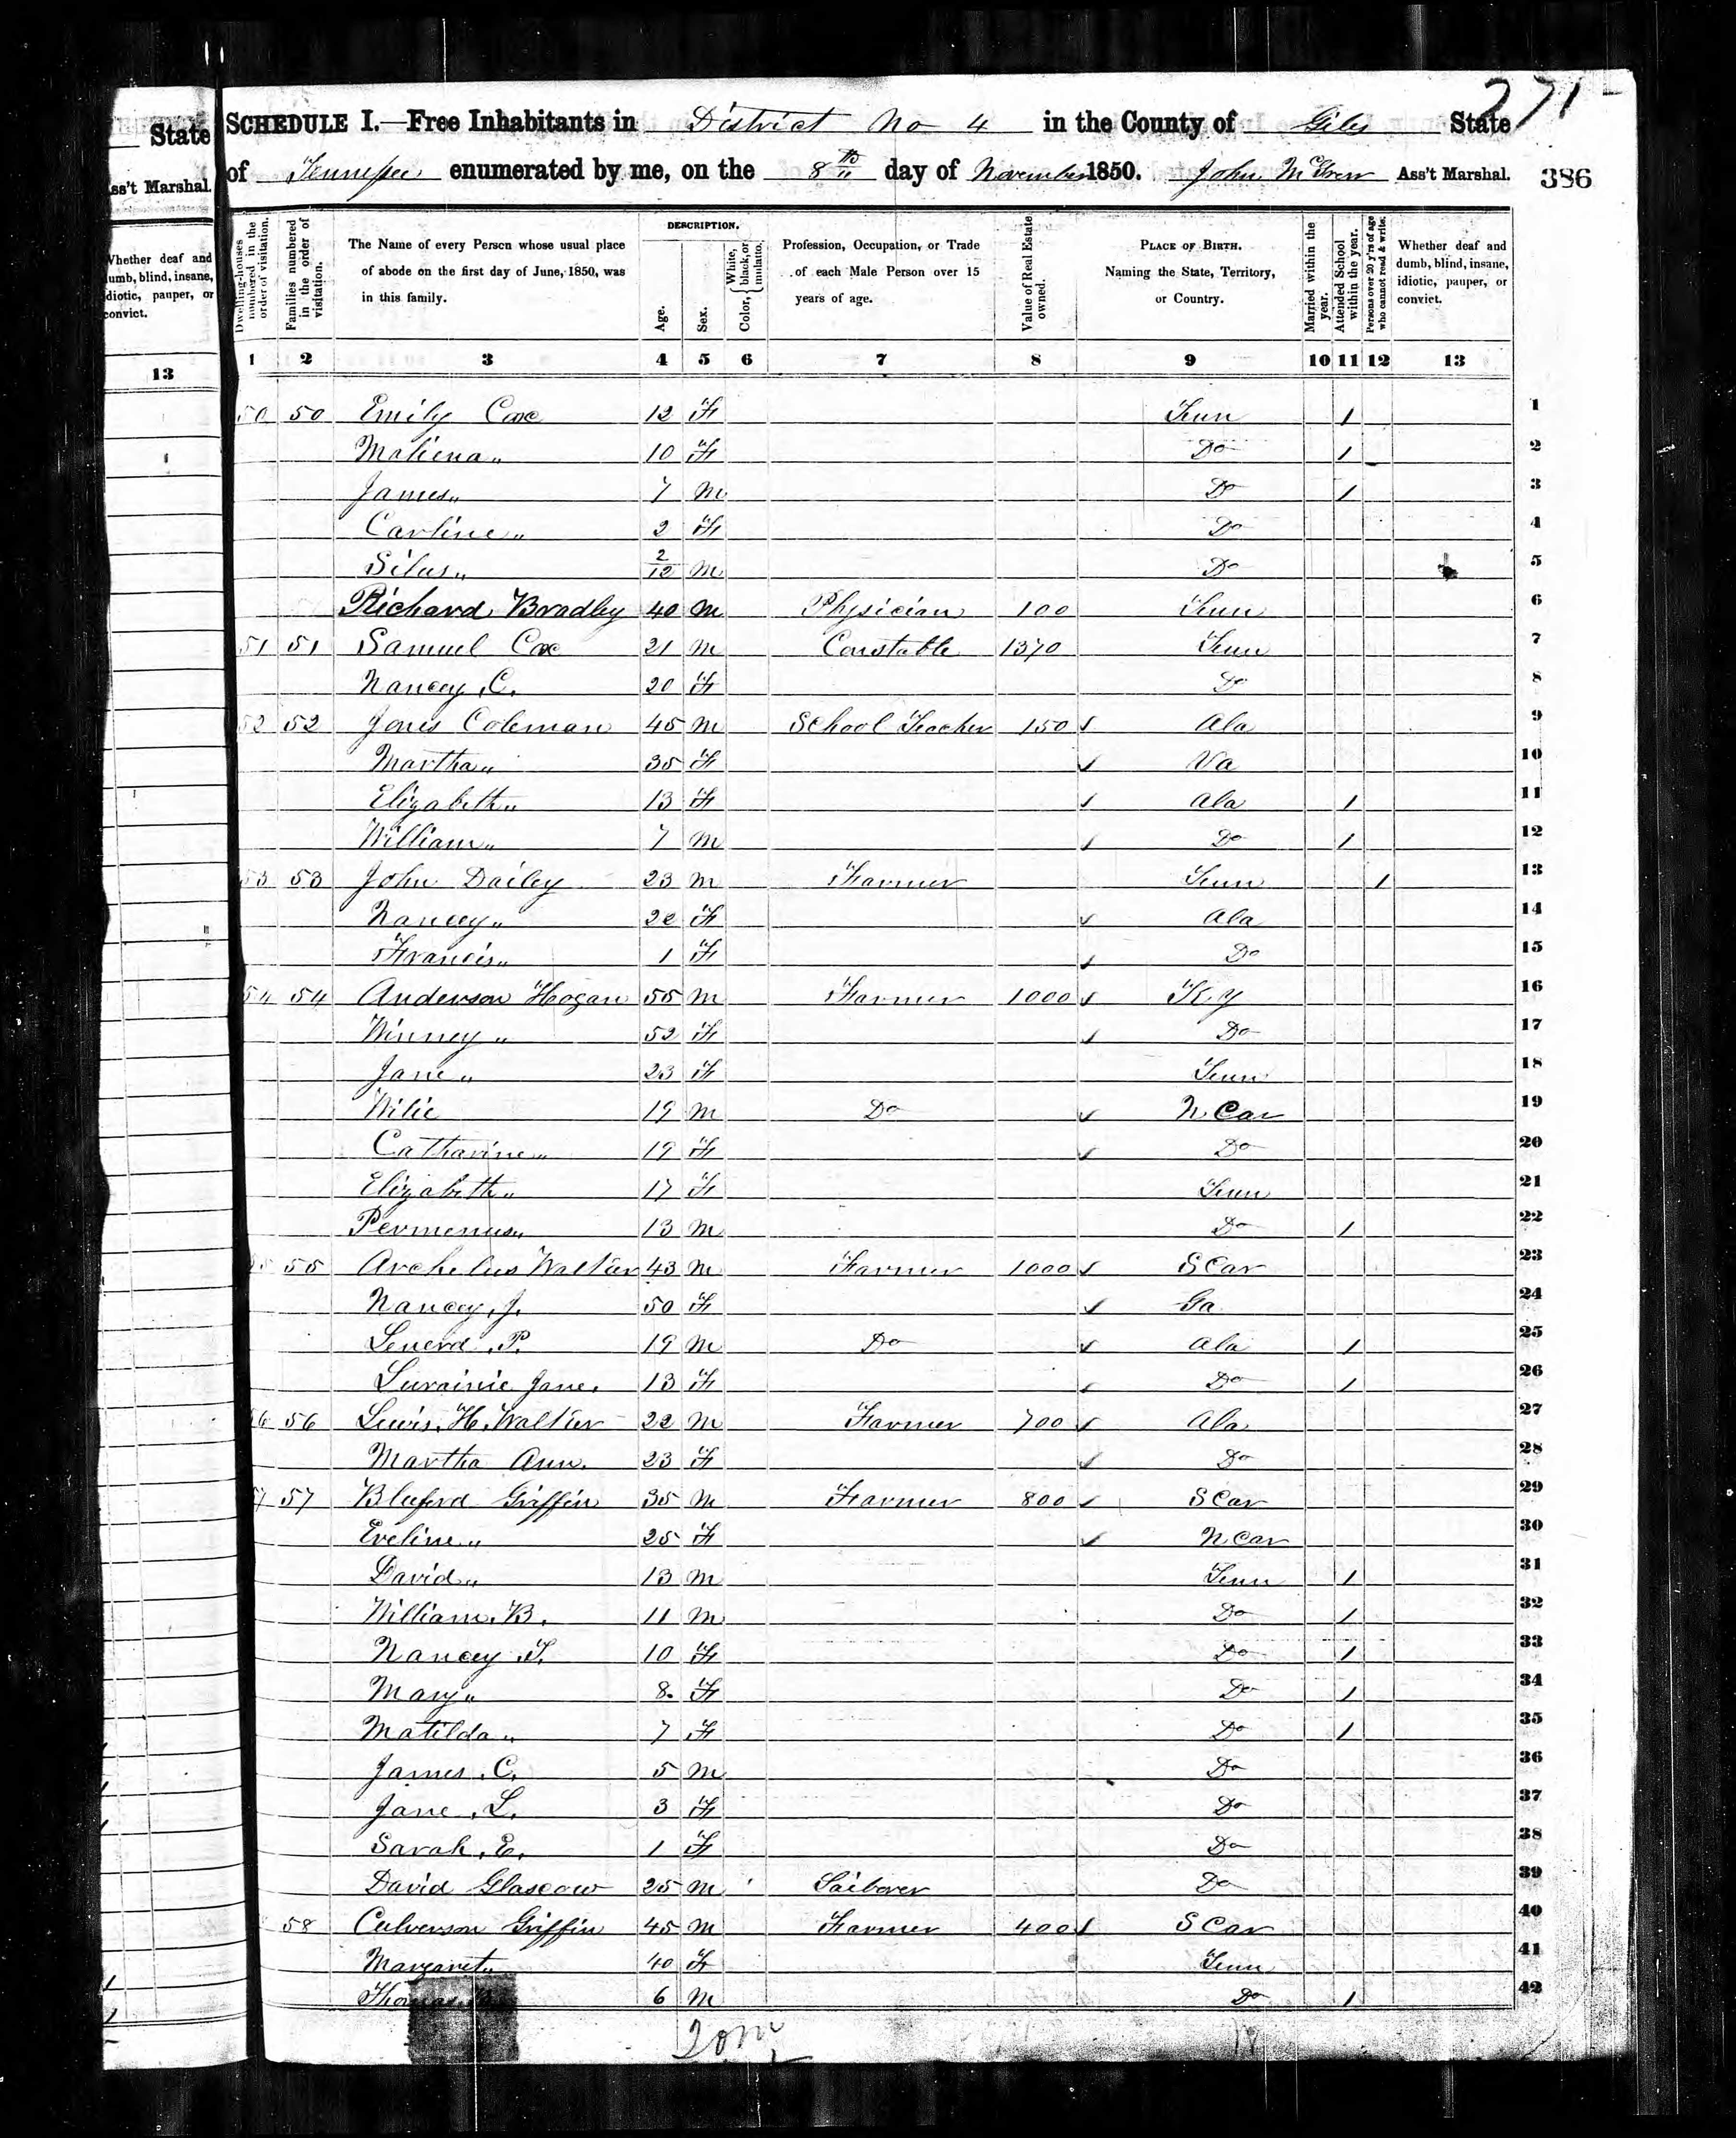 271
State SCHEDULE I.—Free Inhabitants in District No 4 in the County of Giles State
ss't Marshal. of Tennessee enumerated by me, on the 8th day of November 1850. John McGrew Ass't Marshal. 386
Whether deaf and dumb, blind, insane, idiotic, pauper, or convict.
Dwelling-houses numbered in the order of visitation.
Families numbered in the order of visitation.
The Name of every Person whose usual place of abode on the first day of June, 1850, was in this family.
DESCRIPTION.
Age.
Sex.
Color, White, black, or mulatto.
Profession, Occupation, or Trade of each Male Person over 15 years of age.
Value of Real Estate owned.
PLACE OF BIRTH. Naming the State, Territory, or Country.
Married within the year.
Attended School within the year.
Persons over 20 y'rs of age who cannot read & write.
Whether deaf and dumb, blind, insane, idiotic, pauper, or convict.
13 1 2 3 4 5 6 7 8 9 10 11 12 13
50 50 Emily Cox 12 F Tenn / 1
Maliena " 10 F Do / 2
James " 7 M Do / 3
Carline " 2 F Do 4
Silas " 2/12 M Do 5
Richard Bradley 40 M Physician 100 Tenn 6
51 51 Samuel Cox 21 M Constable 1370 Tenn 7
Nancey C. 20 F Do 8
52 52 Jones Coleman 45 M School Teacher 150 Ala 9
Martha " 35 F Va 10
Elizabeth " 13 F Ala / 11
William " 7 M Do / 12
53 53 John Dailey 23 M Farmer Tenn / 13
Nancey " 22 F Ala 14
Francis " 1 F Do 15
54 54 Anderson Hogan 55 M Farmer 1000 Ky 16
Winney " 52 F Do 17
Jane " 23 F Tenn 18
Wilie 19 M Do N Car 19
Catharine " 19 F Do 20
Elizabeth " 17 F Tenn 21
Permenus " 13 M Do / 22
55 Archelus Walker 43 M Farmer 1000 S Car 23
Nancey, J. 50 F Ga 24
Lenerd, P. 19 M Do Ala / 25
Lurainie Jane. 13 F Do / 26
56 56 Lewis, H. Walker 22 M Farmer 700 Ala 27
Martha Ann. 23 F Do 28
57 57 Bluford Griffin 35 M Farmer 800 S Car 29
Eveline " 25 F N Car 30
David " 13 M Tenn / 31
William, B. 11 M Do / 32
Nancey T. 10 F Do / 33
Mary " 8. F Do / 34
Matilda " 7 F Do / 35
James, C. 5 M Do 36
Jane, L. 3 F Do 37
Sarah, E. 1 F Do 38
David Glascow 25 M Laiborer Do 39
58 Culverson Griffin 45 M Farmer 400 S Car 40
Margaret " 40 F Tenn 41
Thomas 6 M Do / 42
20m